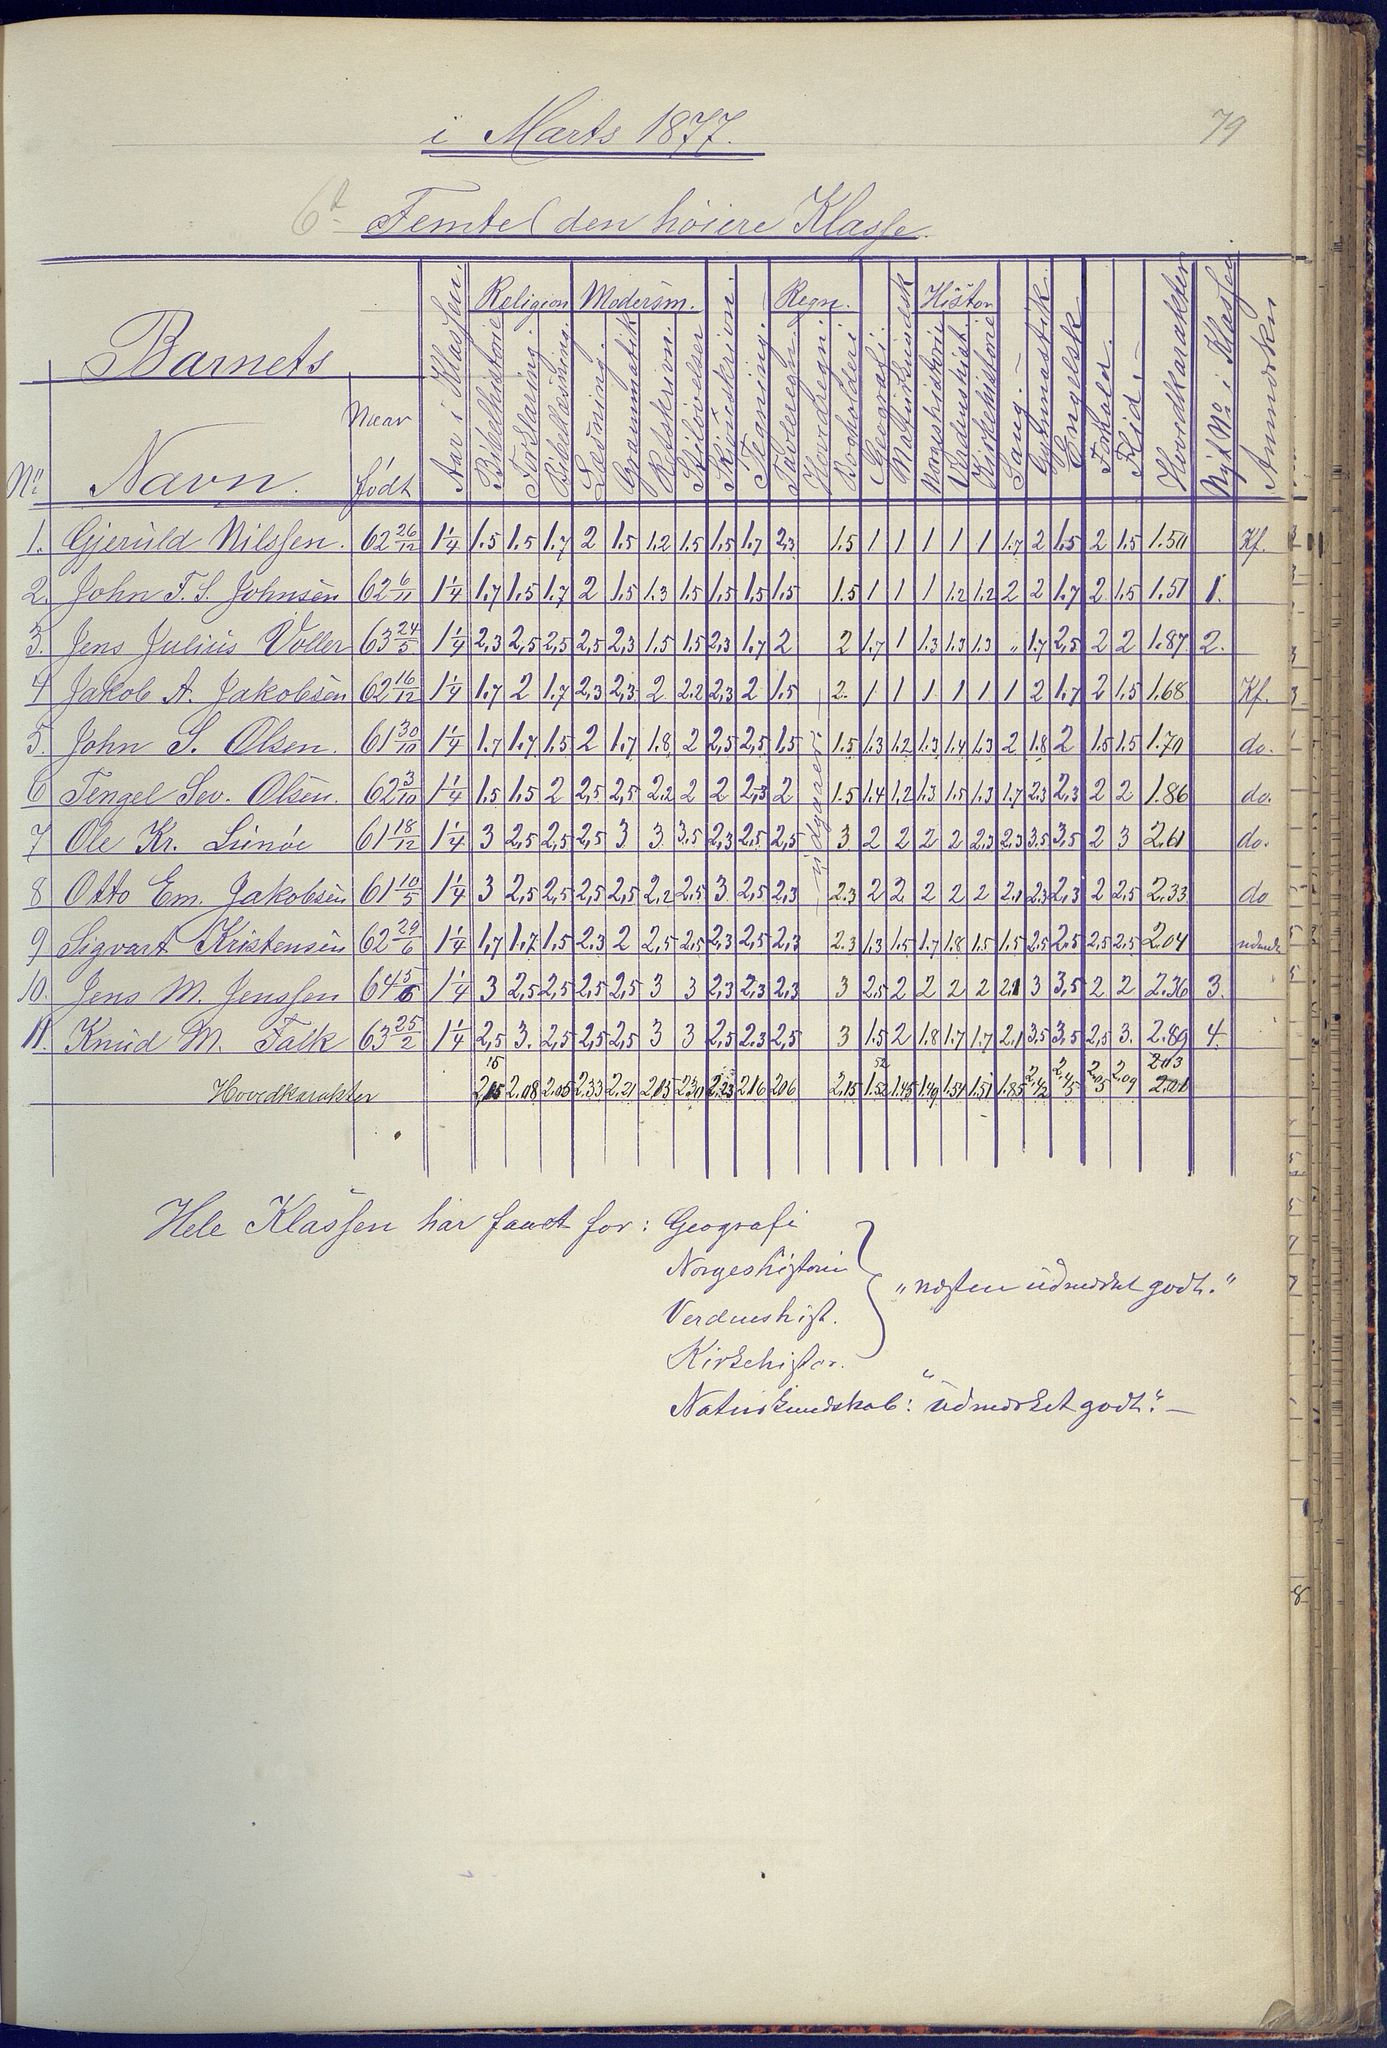 79
i Marts 1877.
6t Femte (den høiere Klasse.
Barnets
Religion Modersm. Regn. Histor
No Navn. Naar født Aar i Klassen. Bibelhistorie Forklaring Bibellæsning. Læsning. Grammatik Retskrivn. Stiløvelser Skjønskrivn. Tegning. Tavleregn. Hovedregn. Bogholderi Geografi. Naturkundsk Norgeshistorie Verdenshist. Kirkehistorie Sang. Gymnastik. Engelsk Forhold. Flid. Hovedkarakter Nyt No i Klassen Anmærkn
1. Gjeruld Nilssen. 62 26/12 1 1/4 1.5 1.5 1.7 2 1.5 1.2 1.5 1.5 1.7 2,3 1.5 1 1 1 1 1 1.7 2 1.5 2 1.5 1.50 Kf.
2. John F. S. Johnsen 62 6/11 1 1/4 1.7 1.5 1.7 2 1.5 1.3 1.5 1.5 1.5 1.5 1.5 1 1 1 1.2 1.2 2 2 1.7 2 1.5 1.51 1.
3. Jens Julius Voller 63 24/5 1 1/4 2,3 2,5 2,5 2,5 2,3 1.5 1.5 2,3 1.7 2 2 1.7 1 1.3 1.3 1.3 " 1.7 2,5 2 2 1.87 2.
4 Jakob A. Jakobsen 62 16/12 1 1/4 1.7 2 1.7 2,3 2,3 2 2.2 2,3 2 1.5 2. 1 1 1 1 1 1 2 1.7 2 1.5 1.68 Kf.
5. John S. Olsen. 61 30/10 1 1/4 1.7 1.7 1.5 2 1.7 1.8 2 2,5 2,5 1.5 1.5 1.3 1.2 1.3 1.4 1.3 2 1.8 2 1.5 1.5 1.70 do.
6 Tengel Sev. Olsen. 62 3/10 1 1/4 1.5 1.5 2 2,5 2,5 2.2 2 2 2,3 2 1.5 1.4 1.2 1.3 1.5 1.3 1.7 2.3 2,3 2 2 1.86 do.
7 Ole Kr. Lunøe 61 18/12 1 1/4 3 2,5 2,5 2,5 3 3 3,5 2,3 2,5 2,5 3 2 2 2 2 2.3 2.3 3.5 3,5 2 3 2.61 do.
udgaaer
8 Otto Em. Jakobsen 61 10/5 1 1/4 3 2,5 2,5 2,5 2,5 2,2 2,5 3 2,5 2,3 2.3 2 2 2 2 2 2.1 2.3 2,3 2 2,5 2.33 do
9 Sigvart Kristensen 62 29/6 1 1/4 1,7 1.7 1.5 2.3 2 2,5 2.5 2,3 2,5 2,3 2.3 1.3 1.5 1.7 1.8 1.5 1.5 2.5 2.5 2,5 2.5 2.04
10. Jens M. Jenssen 64 5/6 1 1/4 3 2,5 2,5 2,5 2,5 3 3 2,3 2,3 2,3 3 2.5 2 2 2 2 2.1 3 3,5 2 2 2.36 3.
11. Knud M. Falk 63 25/2 1 1/4 2,5 3. 2,5 2,5 2,5 3 3 2,5 2.3 2,5 3 1.5 2 1.8 1.7 1.7 2.1 3,5 3,5 2,5 3. 2.89 4.
15 52 2.03
Hovedkarakter 2,15 2.08 2.05 2.33 2.21 2.13 2.30 2.23 2.16 2.06 2.15 1.52 1.45 1.49 1.54 1.51 1.85 2.42 2.45 2.05 2.09 2.01
Hele Klassen har faaet for: Geografi
Norgeshistorie
"næsten udmærket godt."
Verdenshist.
Kirkehistor.
Naturkundskab: "udmærket godt." —